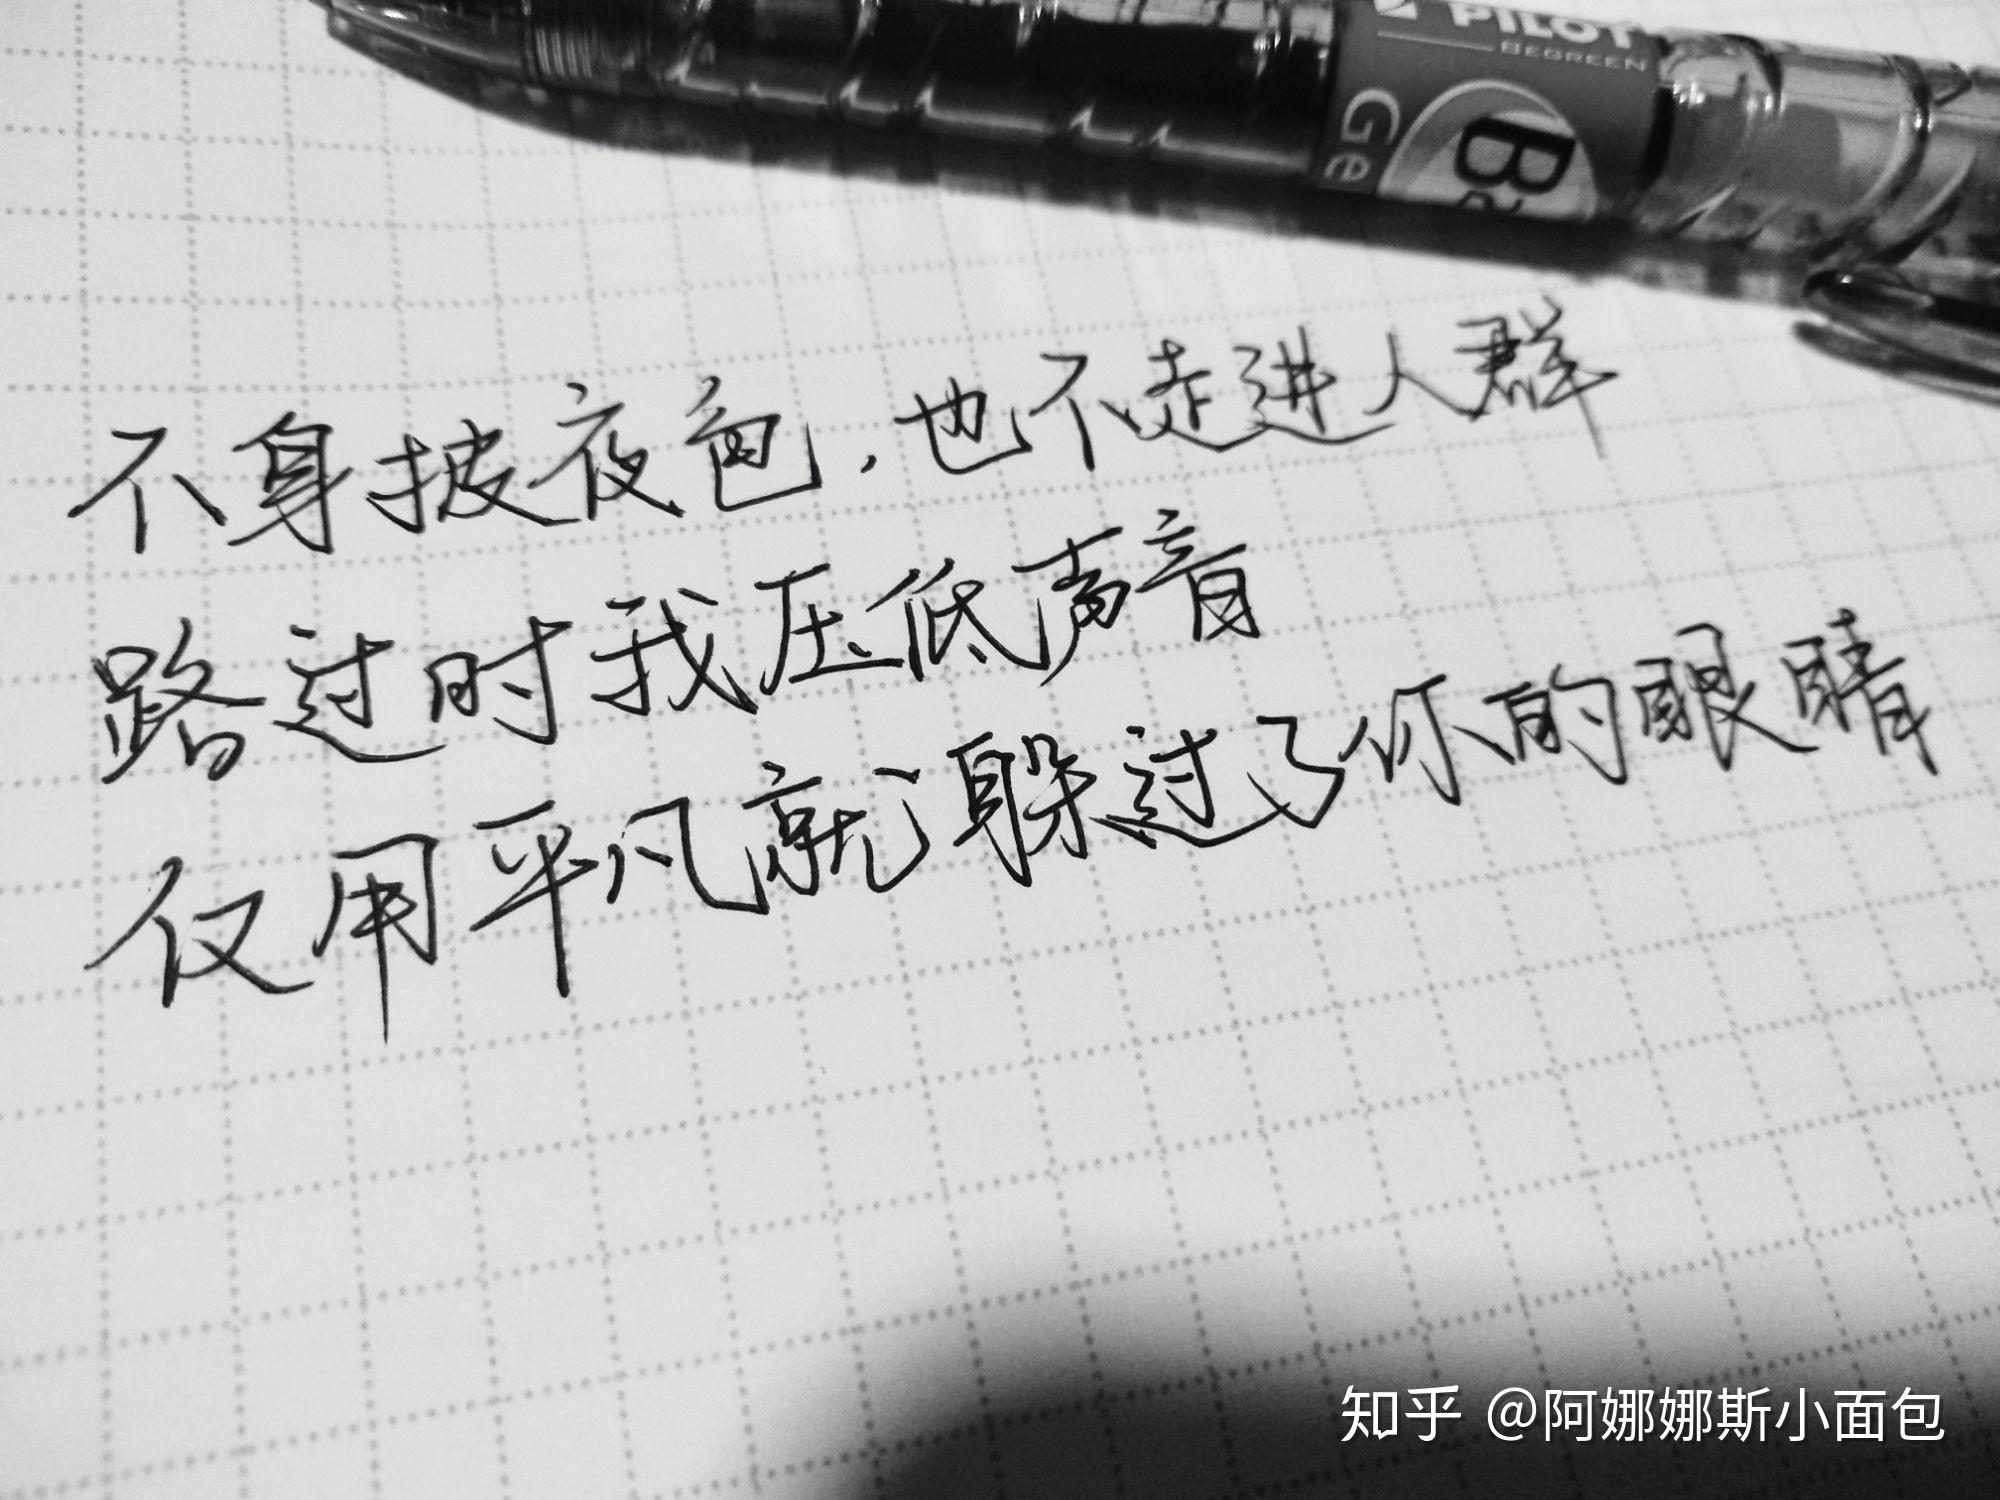 PILOT
BEGREEN
Ge
Ba
不身披夜色，也不走进人群
路过时我压低声音
仅用平凡就躲过了你的眼睛
知乎 @阿娜娜斯小面包